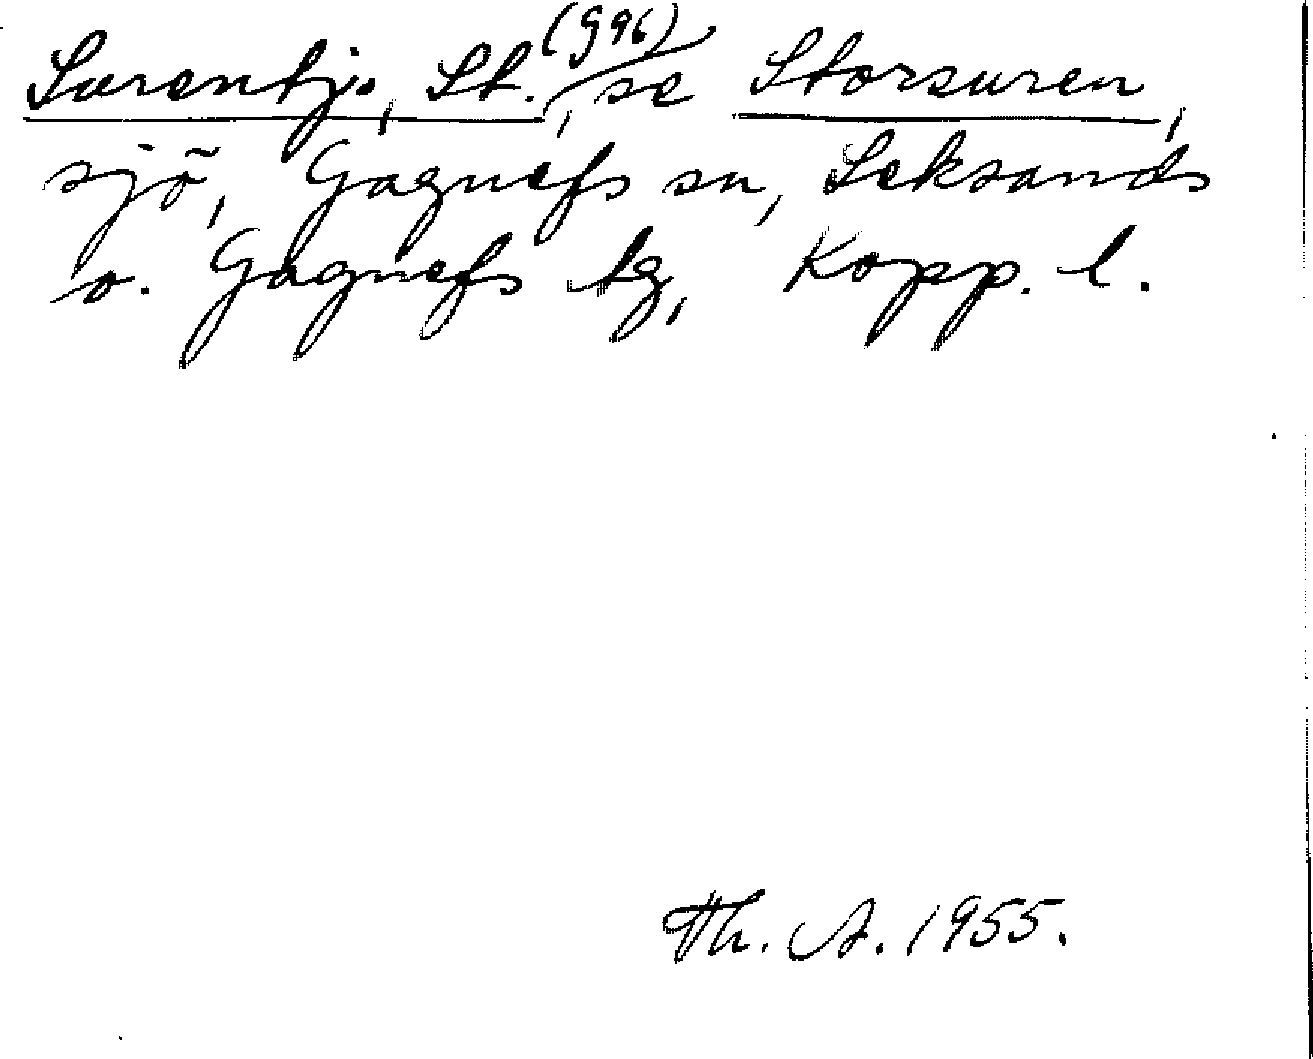 Surentj., St. (G96), se Storsuren,
sjö, Gagnefs sn, Leksands
o. Gagnefs tg, Kopp. l.
Th. A. 1955.